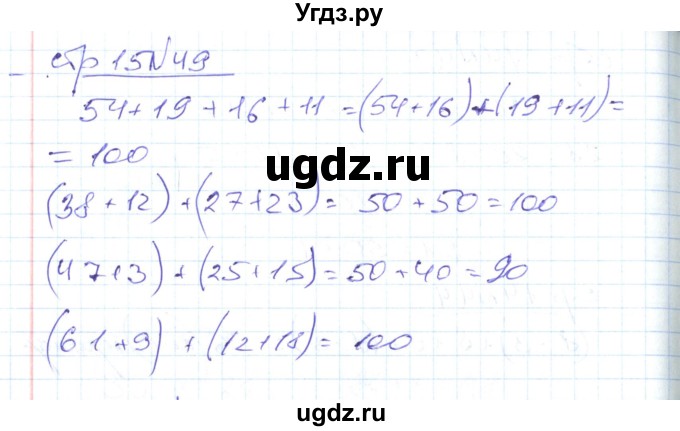 Угдз.ру
стр 15 №49
54+19+16+11=(54+16)+(19+11)=
=100
ugdz.ru
(38+12)+(27+23)=50+50=100
(47+3)+(25+15)=50+40=90
ugdz.ru
(61+9)+(12+18)=100
ugdz.ru